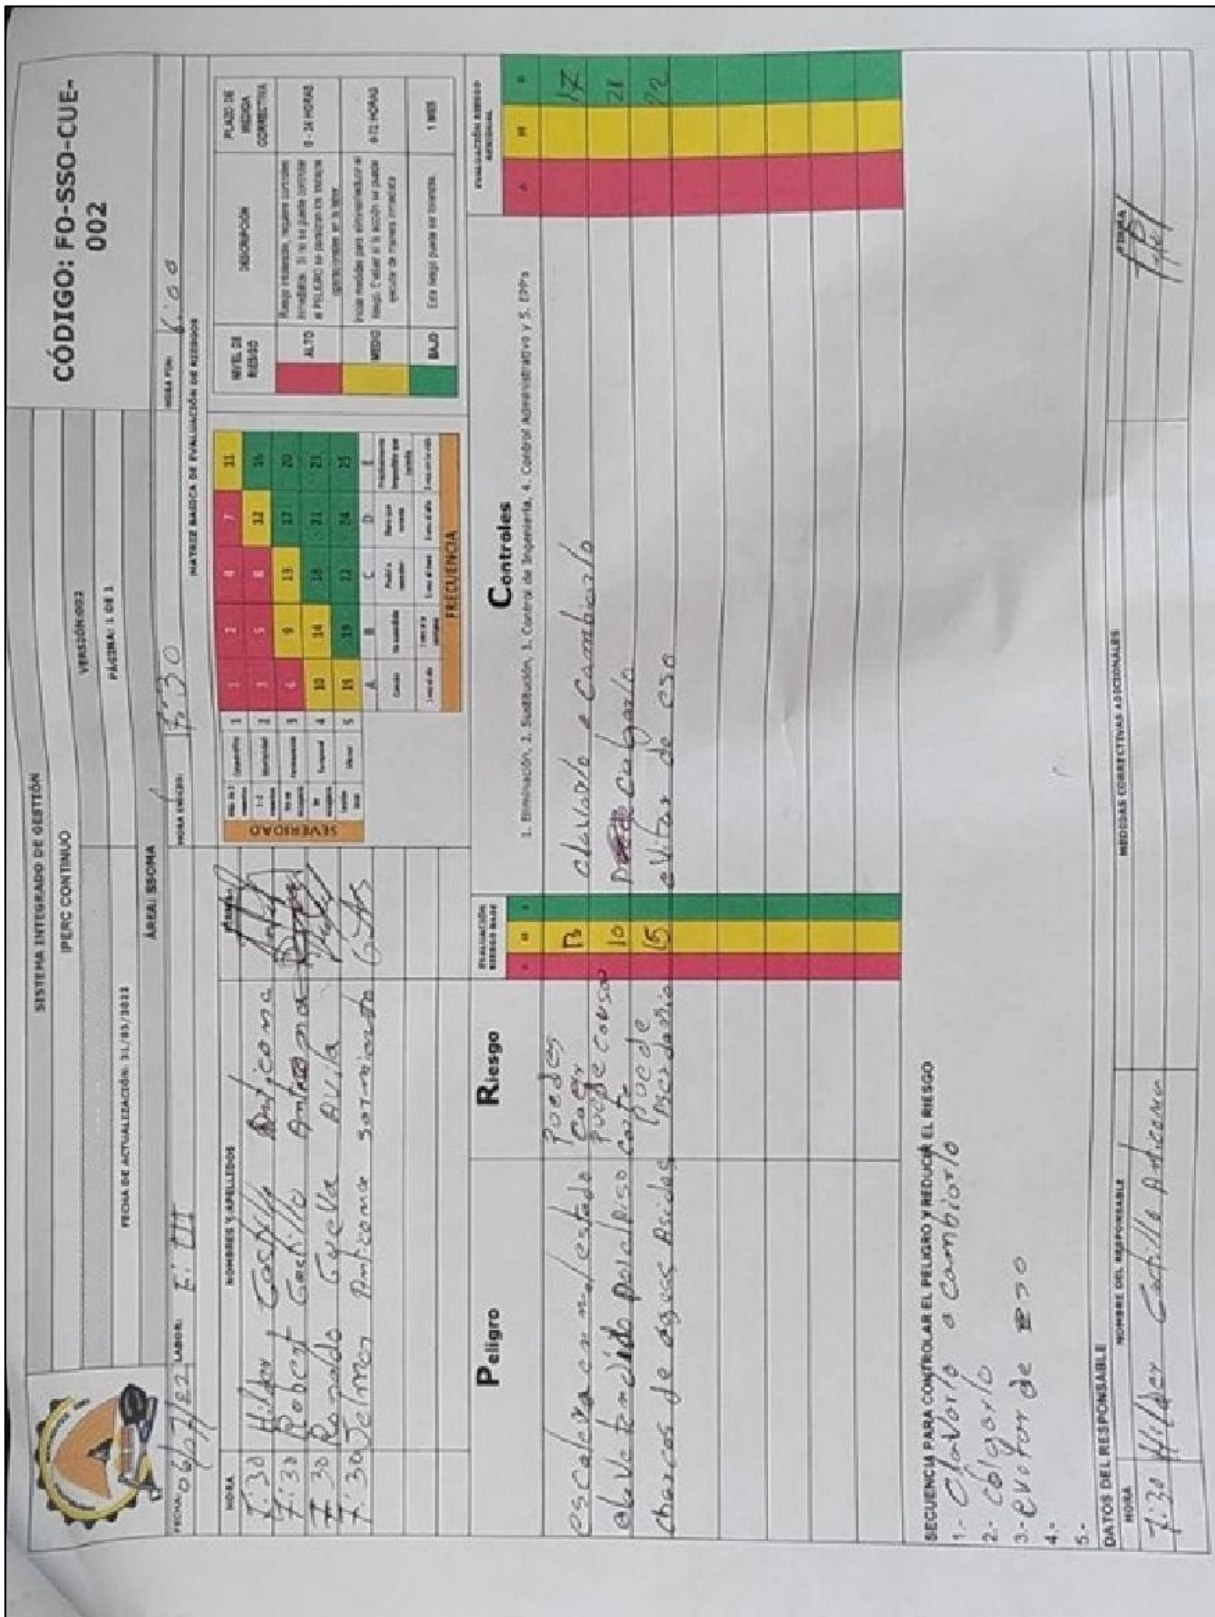 SISTEMA INTEGRADO DE GESTIÓN
IPERC CONTINUO
CÓDIGO: FO-SSO-CUE-002
VERSIÓN:003
FECHA DE ACTUALIZACIÓN: 31/03/2022
PÁGINA: 1 DE 1
ÁREA: SSOMA
FECHA: 06/07/22 LABOR: E: III HORA INICIO: 7:30 HORA FIN: 6:00
HORA NOMBRES Y APELLIDOS FIRMA
7:30 Hilder Castillo Anticona
7:30 Robert Castillo Anticona
7:30 Ronaldo Avila
7:30 Jelmer Anticona Sarmiento
MATRIZ BASICA DE EVALUACIÓN DE RIESGOS
SEVERIDAD
Catastrófico 1 1 2 4 7 11
Mortalidad 2 3 5 8 12 16
Permanente 3 6 9 13 17 20
Temporal 4 10 14 18 21 23
Menor 5 15 19 22 24 25
A B C D E
Común Ha sucedido Podría suceder Raro que suceda Prácticamente imposible que suceda
FRECUENCIA
NIVEL DE RIESGO DESCRIPCIÓN PLAZO DE MEDIDA CORRECTIVA
ALTO Riesgo intolerable, requiere controles inmediatos. Si no se puede controlar el PELIGRO se paralizan los trabajos operacionales en la labor 0 - 24 HORAS
MEDIO Iniciar medidas para eliminar/reducir el riesgo. Evaluar si la acción se puede ejecutar de manera inmediata 0-72 HORAS
BAJO Este riesgo puede ser tolerable. 1 MES
Peligro Riesgo EVALUACIÓN RIESGO BASE Controles EVALUACIÓN RIESGO RESIDUAL
1. Eliminación, 2. Sustitución, 3. Control de Ingeniería, 4. Control Administrativo y 5. EPPs
A M B
A M B
escalera en mal estado Puedes caer 13 clavarlo o cambiarlo 17
tendido por el piso puede causar 10 colgarlo 21
charcos de aguas Asidas puede 15 evitar de eso 22
SECUENCIA PARA CONTROLAR EL PELIGRO Y REDUCIR EL RIESGO
1.- Clavarlo o cambiarlo
2.- colgarlo
3.- evitar de eso
4.-
5.-
DATOS DEL RESPONSABLE
HORA NOMBRE DEL RESPONSABLE MEDIDAS CORRECTIVAS ADICIONALES FIRMA
7:30 Hilder Castillo Anticona